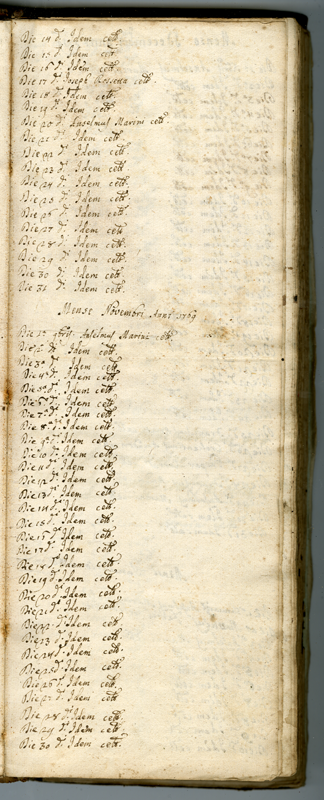 Die 14 dº Idem celt.
Die 15 dº Idem celt.
Die 16 dº Idem celt.
Die 17 dº Joseph celt.
Die 18 dº Idem celt.
Die 19 dº Idem celt.
Die 20 dº Anselmus Marini celt.
Die 21 dº Idem celt.
Die 22 dº Idem celt.
Die 23 dº Idem celt.
Die 24 dº Idem celt.
Die 25 dº Idem celt.
Die 26 dº Idem celt.
Die 27 dº Idem celt.
Die 28 dº Idem celt.
Die 29 dº Idem celt.
Die 30 dº Idem celt.
Die 31 dº Idem celt.
Mense Novembri Anni 1769
Die 1ª Anselmus Marini celt.
Die 2ª dº Idem celt.
Die 3ª dº Idem celt.
Die 4ª dº Idem celt.
Die 5ª dº Idem celt.
Die 6ª dº Idem celt.
Die 7ª dº Idem celt.
Die 8ª dº Idem celt.
Die 9ª dº Idem celt.
Die 10 dº Idem celt.
Die 11 dº Idem celt.
Die 12 dº Idem celt.
Die 13 dº Idem celt.
Die 14 dº Idem celt.
Die 15 dº Idem celt.
Die 16 dº Idem celt.
Die 17 dº Idem celt.
Die 18 dº Idem celt.
Die 19 dº Idem celt.
Die 20 dº Idem celt.
Die 21 dº Idem celt.
Die 22 dº Idem celt.
Die 23 dº Idem celt.
Die 24 dº Idem celt.
Die 25 dº Idem celt.
Die 26 dº Idem celt.
Die 27 dº Idem celt.
Die 28 dº Idem celt.
Die 29 dº Idem celt.
Die 30 dº Idem celt.